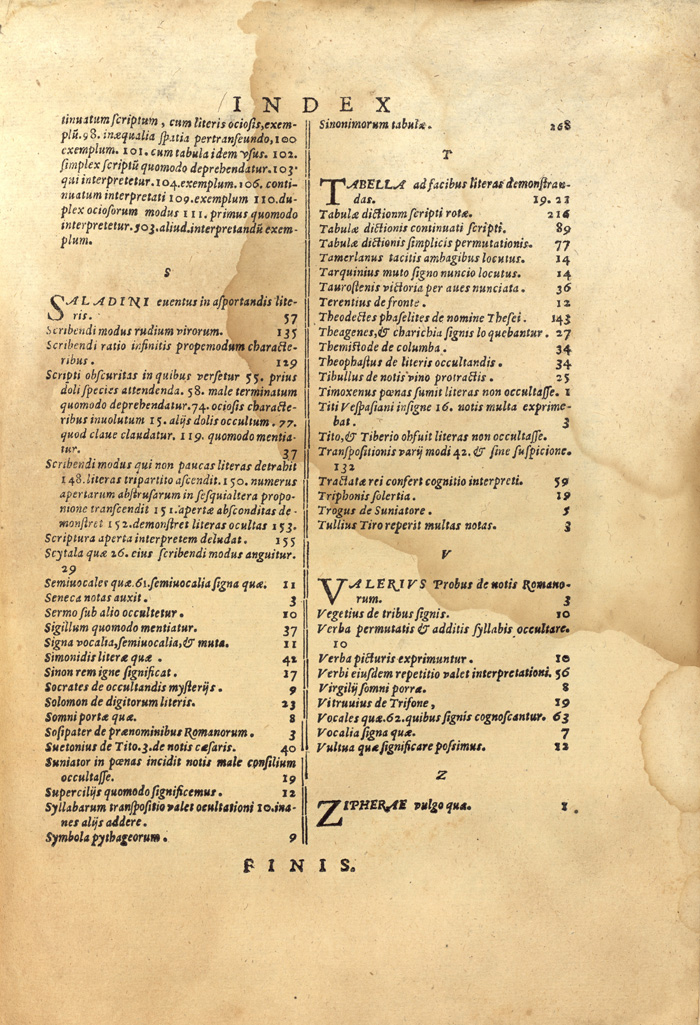 INDEX
tinuatum scriptum, cum literis ociosis,exem-
plũ.98. inæqualia spatia pertranseundo,100
exemplum. 101. cum tabula idem vsus. 102.
simplex scriptũ quomodo deprehendatur.103.
qui interpretetur.104.exemplum.106. conti-
nuatum interpretati 109.exemplum 110.du-
plex ociosorum modus 111. primus quomodo
interpretetur.503.aliud.interpretandũ exem-
plum.
S
SALADINI euentus in asportandis lite-
ris. 57
Scribendi modus rudium virorum. 135
Scribendi ratio infinitis propemodum characte-
ribus. 129
Scripti obscuritas in quibus versetur 55. prius
doli species attendenda. 58. male terminatum
quomodo deprehendatur.74. ociosis characte-
ribus inuolutum 15. alijs dolis occultum. 77.
quod claue claudatur. 119. quomodo mentia-
tur. 37
Scribendi modus qui non paucas literas detrahit
148.literas tripartito ascendit.150. numerus
apertarum abstrusarum in sesquialtera propo-
nione transcendit 151.apertæ absconditas de-
monstret 152.demonstret literas ocultas 153.
Scriptura aperta interpretem deludat. 155
Scytala quæ 26. eius scribendi modus anguitur.
29
Semiuocales quæ.61.semiuocalia signa quæ. 11
Seneca notas auxit. 3
Sermo sub alio occultetur. 10
Sigillum quomodo mentiatur. 37
Signa vocalia,semiuocalia,& muta. 11
Simonidis literæ quæ. 42
Sinon rem igne significat. 17
Socrates de occultandis mysterijs. 9
Solomon de digitorum literis. 23
Somni portæ quæ. 8
Sosipater de prænominibus Romanorum. 3
Suetonius de Tito.3.de notis cæsaris. 40
Suniator in pœnas incidit notis male consilium
occultasse. 19
Supercilijs quomodo significemus. 12
Syllabarum transpositio valet ocultationi 10.ina-
nes alijs addere.
Symbola pythageorum. 9
Sinonimorum tabulæ. 268
T
TABELLA ad facibus literas demonstran-
das. 19.21
Tabulæ dictionm scripti rotæ. 216
Tabulæ dictionis continuati scripti. 89
Tabulæ dictionis simplicis permutationis. 77
Tamerlanus tacitis ambagibus locutus. 14
Tarquinius muto signo nuncio locutus. 14
Taurostenis victoria per aues nunciata. 36
Terentius de fronte. 12
Theodectes phaselites de nomine Thesei. 143
Theagenes,& charichia signis lo quebantur. 27
Themistode de columba. 34
Theophastus de literis occultandis. 34
Tibullus de notis vino protractis. 25
Timoxenus pœnas sumit literas non occultasse. 1
Titi Vespasiani insigne 16. notis multa exprime-
bat. 3
Tito,& Tiberio obfuit literas non occultasse.
Transpositionis varij modi 42. & sine suspicione.
132
Tractatæ rei confert cognitio interpreti. 59
Triphonis solertia. 19
Trogus de Suniatore. 5
Tullius Tiro reperit multas notas. 3
V
VALERIVS Probus de notis Romano-
rum. 3
Vegetius de tribus signis. 10
Verba permutatis & additis syllabis occultare.
10
Verba picturis exprimuntur. 10
Verbi eiusdem repetitio valet interpretationi. 56
Virgilij somni porræ. 8
Vitruuius de Trifone, 19
Vocales quæ.62.quibus signis cognoscantur. 63
Vocalia signa quæ. 7
Vultua quæ significare possimus. 12
Z
ZIPHERAE vulgo quæ. 1
FINIS.